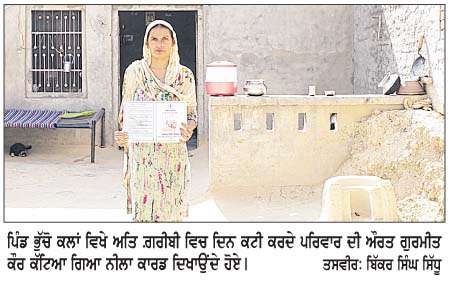 ਪਿੰਡ ਭੁੱਚੋ ਕਲਾਂ ਵਿਖੇ ਅਤਿ ਗ਼ਰੀਬੀ ਵਿਚ ਦਿਨ ਕਟੀ ਕਰਦੇ ਪਰਿਵਾਰ ਦੀ ਔਰਤ ਗੁਰਮੀਤ
ਕੌਰ ਕੱਟਿਆ ਗਿਆ ਨੀਲਾ ਕਾਰਡ ਦਿਖਾਉਂਦੇ ਹੋਏ। ਤਸਵੀਰ: ਬਿੱਕਰ ਸਿੰਘ ਸਿੱਧੂ